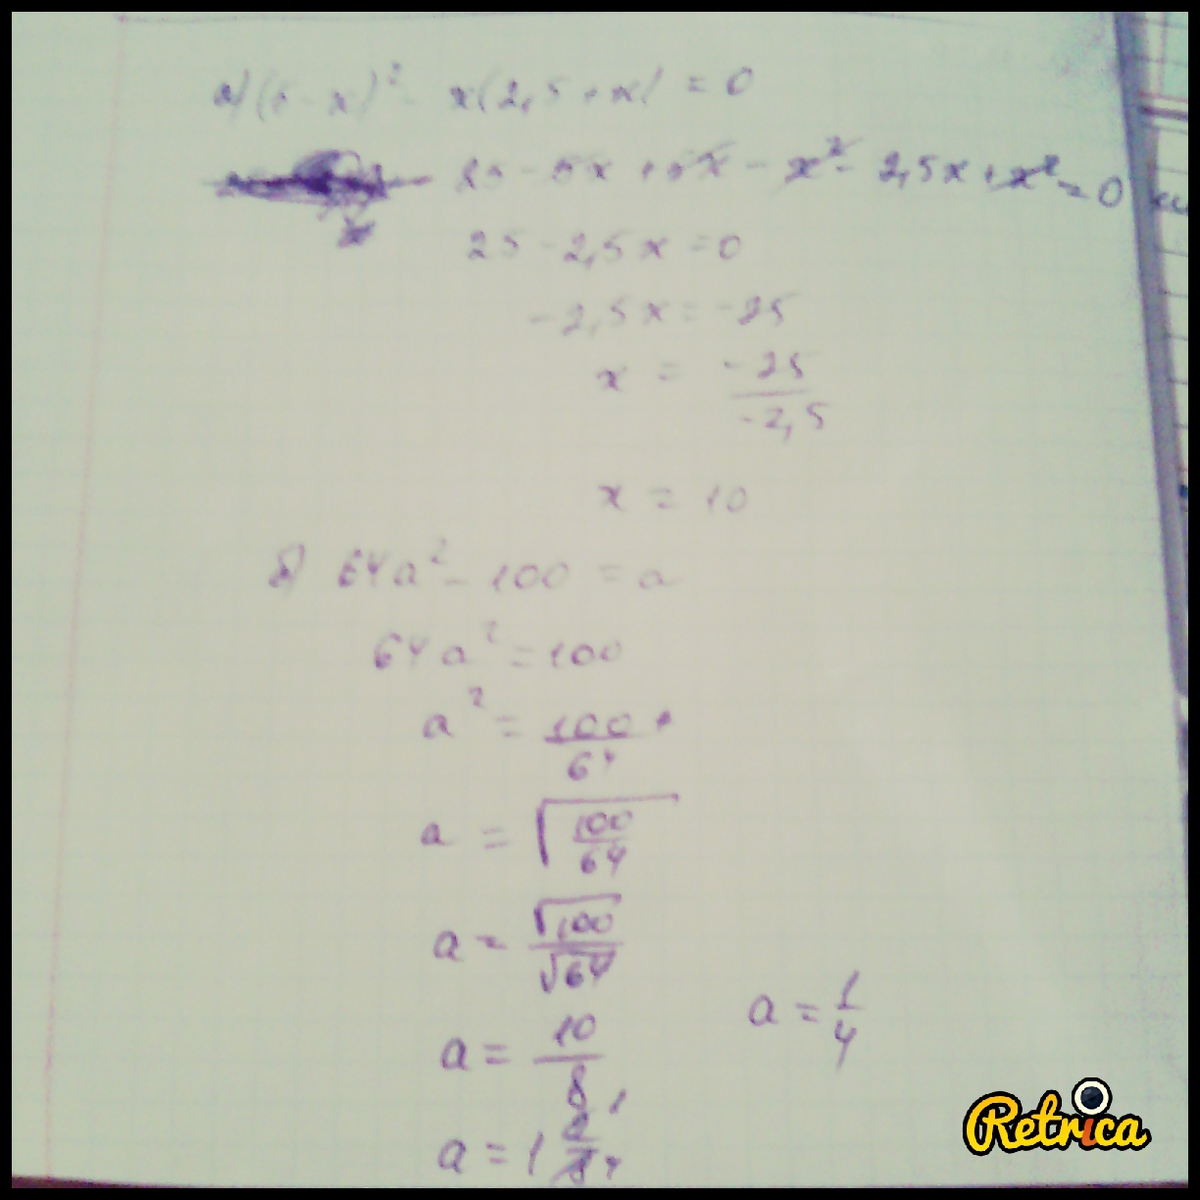 а) (5 - x)² - x(2,5 + x) = 0
25 - 5x + 5x - x² - 2,5x + x² = 0
25 - 2,5x = 0
-2,5x = -25
x = -25/-2,5
x = 10
б) 64a² - 100 = a
64a² = 100
a² = 100/64
a = √100/64
a = √100/√64
a = 10/8
a = 1 2/8 1/4
a = 1/4
Retrica